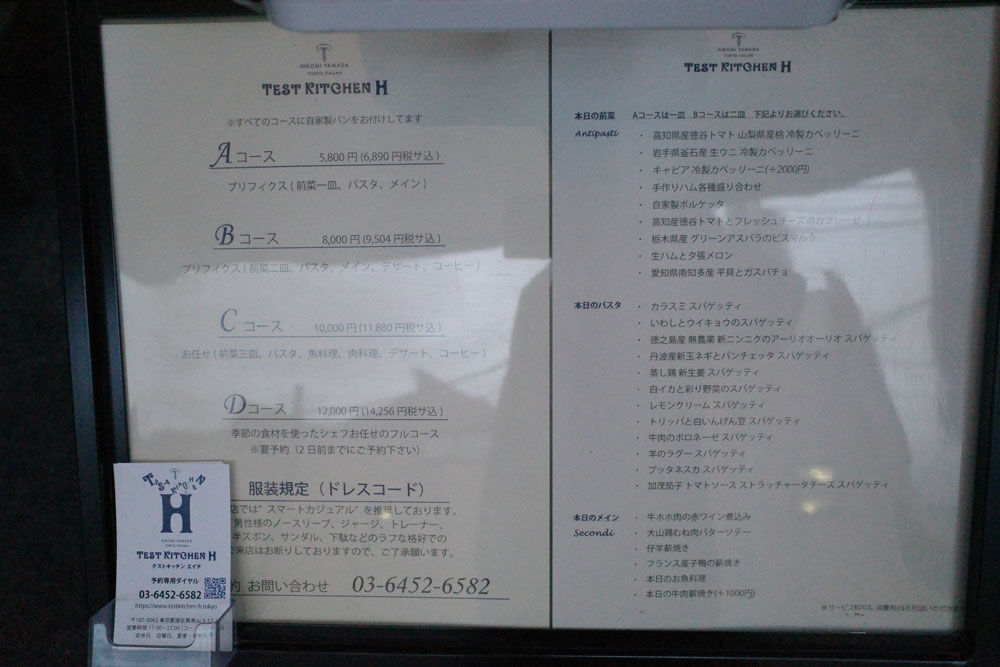 HIROMI YAMADA
TOKYO ITALIAN
TEST KITCHEN H
※すべてのコースに自家製パンをお付けしてます
Aコース 5,800円(6,890円税サ込)
プリフィクス(前菜一皿、パスタ、メイン)
Bコース 8,000円(9,504円税サ込)
プリフィクス(前菜二皿、パスタ、メイン、デザート、コーヒー)
Cコース 10,000円(11,880円税サ込)
お任せ(前菜三皿、パスタ、魚料理、肉料理、デザート、コーヒー)
Dコース 12,000円(14,256円税サ込)
季節の食材を使ったシェフお任せのフルコース
※要予約(2日前までにご予約下さい)
服装規定(ドレスコード)
店では"スマートカジュアル"を推奨しております。
男性様のノースリーブ、ジャージ、トレーナー、
半ズボン、サンダル、下駄などのラフな格好での
ご来店はお断りしておりますので、ご了承願います。
約 お問い合わせ 03-6452-6582
TEST KITCHEN
H
HIROMI YAMADA
TOKYO ITALIAN
TEST KITCHEN H
テストキッチン エイチ
予約専用ダイヤル
03-6452-6582
https://www.testkitchen-h.tokyo
営業時間 17:30~23:00
定休日 日曜日、夏季・
HIROMI YAMADA
TOKYO ITALIAN
TEST KITCHEN H
本日の前菜 Aコースは一皿 Bコースは二皿 下記よりお選びください。
Antipasti
・ 高知県産徳谷トマト 山梨県産桃 冷製カペッリーニ
・ 岩手県釜石産 生ウニ 冷製カペッリーニ
・ キャビア 冷製カペッリーニ(+2000円)
・ 手作りハム各種盛り合わせ
・ 自家製ポルケッタ
・ 高知産徳谷トマトとフレッシュチーズのカプレーゼ
・ 栃木県産 グリーンアスパラのビスマルク
・ 生ハムと夕張メロン
・ 愛知県南知多産 平貝とガスパチョ
本日のパスタ ・ カラスミ スパゲッティ
・ いわしとウイキョウのスパゲッティ
・ 徳之島産 無農薬 新ニンニクのアーリオオーリオ スパゲッティ
・ 丹波産新玉ネギとパンチェッタ スパゲッティ
・ 蒸し鶏 新生姜 スパゲッティ
・ 白イカと彩り野菜のスパゲッティ
・ レモンクリーム スパゲッティ
・ トリッパと白いんげん豆 スパゲッティ
・ 牛肉のボロネーゼ スパゲッティ
・ 羊のラグー スパゲッティ
・ プッタネスカ スパゲッティ
・ 加茂茄子 トマトソース ストラッチャータチーズ スパゲッティ
本日のメイン ・ 牛ホホ肉の赤ワイン煮込み
Secondi ・ 大山鶏むね肉バターソテー
・ 仔羊薪焼き
・ フランス産子鴨の薪焼き
・ 本日のお魚料理
・ 本日の牛肉薪焼き(+1000円)